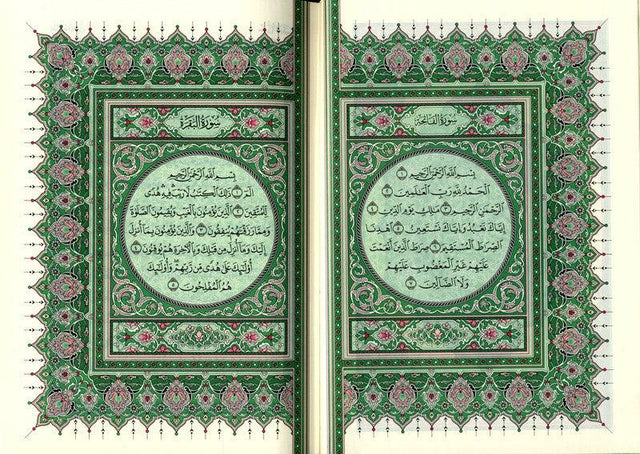 سُورَةُ الفَاتِحَةِ
بِسْمِ اللَّهِ الرَّحْمَٰنِ الرَّحِيمِ ١
الْحَمْدُ لِلَّهِ رَبِّ الْعَالَمِينَ ٢
الرَّحْمَٰنِ الرَّحِيمِ ٣ مَالِكِ يَوْمِ الدِّينِ ٤
إِيَّاكَ نَعْبُدُ وَإِيَّاكَ نَسْتَعِينُ ٥ اهْدِنَا
الصِّرَاطَ الْمُسْتَقِيمَ ٦ صِرَاطَ الَّذِينَ أَنْعَمْتَ
عَلَيْهِمْ غَيْرِ الْمَغْضُوبِ عَلَيْهِمْ
وَلَا الضَّالِّينَ ٧
سُورَةُ البَقَرَةِ
بِسْمِ اللَّهِ الرَّحْمَٰنِ الرَّحِيمِ
الم ١ ذَٰلِكَ الْكِتَابُ لَا رَيْبَ فِيهِ هُدًى
لِّلْمُتَّقِينَ ٢ الَّذِينَ يُؤْمِنُونَ بِالْغَيْبِ وَيُقِيمُونَ الصَّلَاةَ
وَمِمَّا رَزَقْنَاهُمْ يُنفِقُونَ ٣ وَالَّذِينَ يُؤْمِنُونَ بِمَا أُنزِلَ
إِلَيْكَ وَمَا أُنزِلَ مِن قَبْلِكَ وَبِالْآخِرَةِ هُمْ يُوقِنُونَ ٤
أُولَٰئِكَ عَلَىٰ هُدًى مِّن رَّبِّهِمْ وَأُولَٰئِكَ
هُمُ الْمُفْلِحُونَ ٥